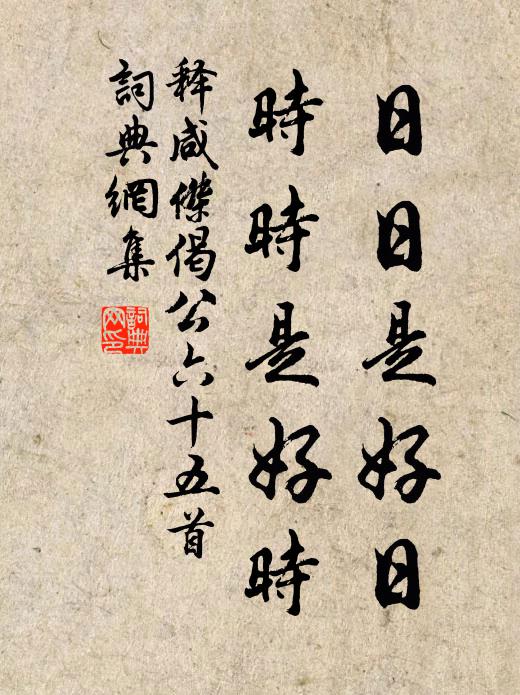 日日是好日
時時是好時
释咸傑偈公六十五首
詞典網集
詞典网印